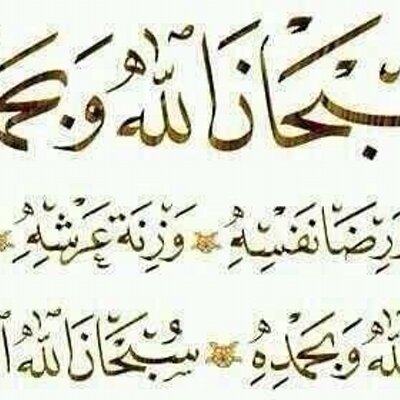 سبحان الله وبحم
ورضا نفسه وزنة عرشه
لله وبحمده سبحان الله ا